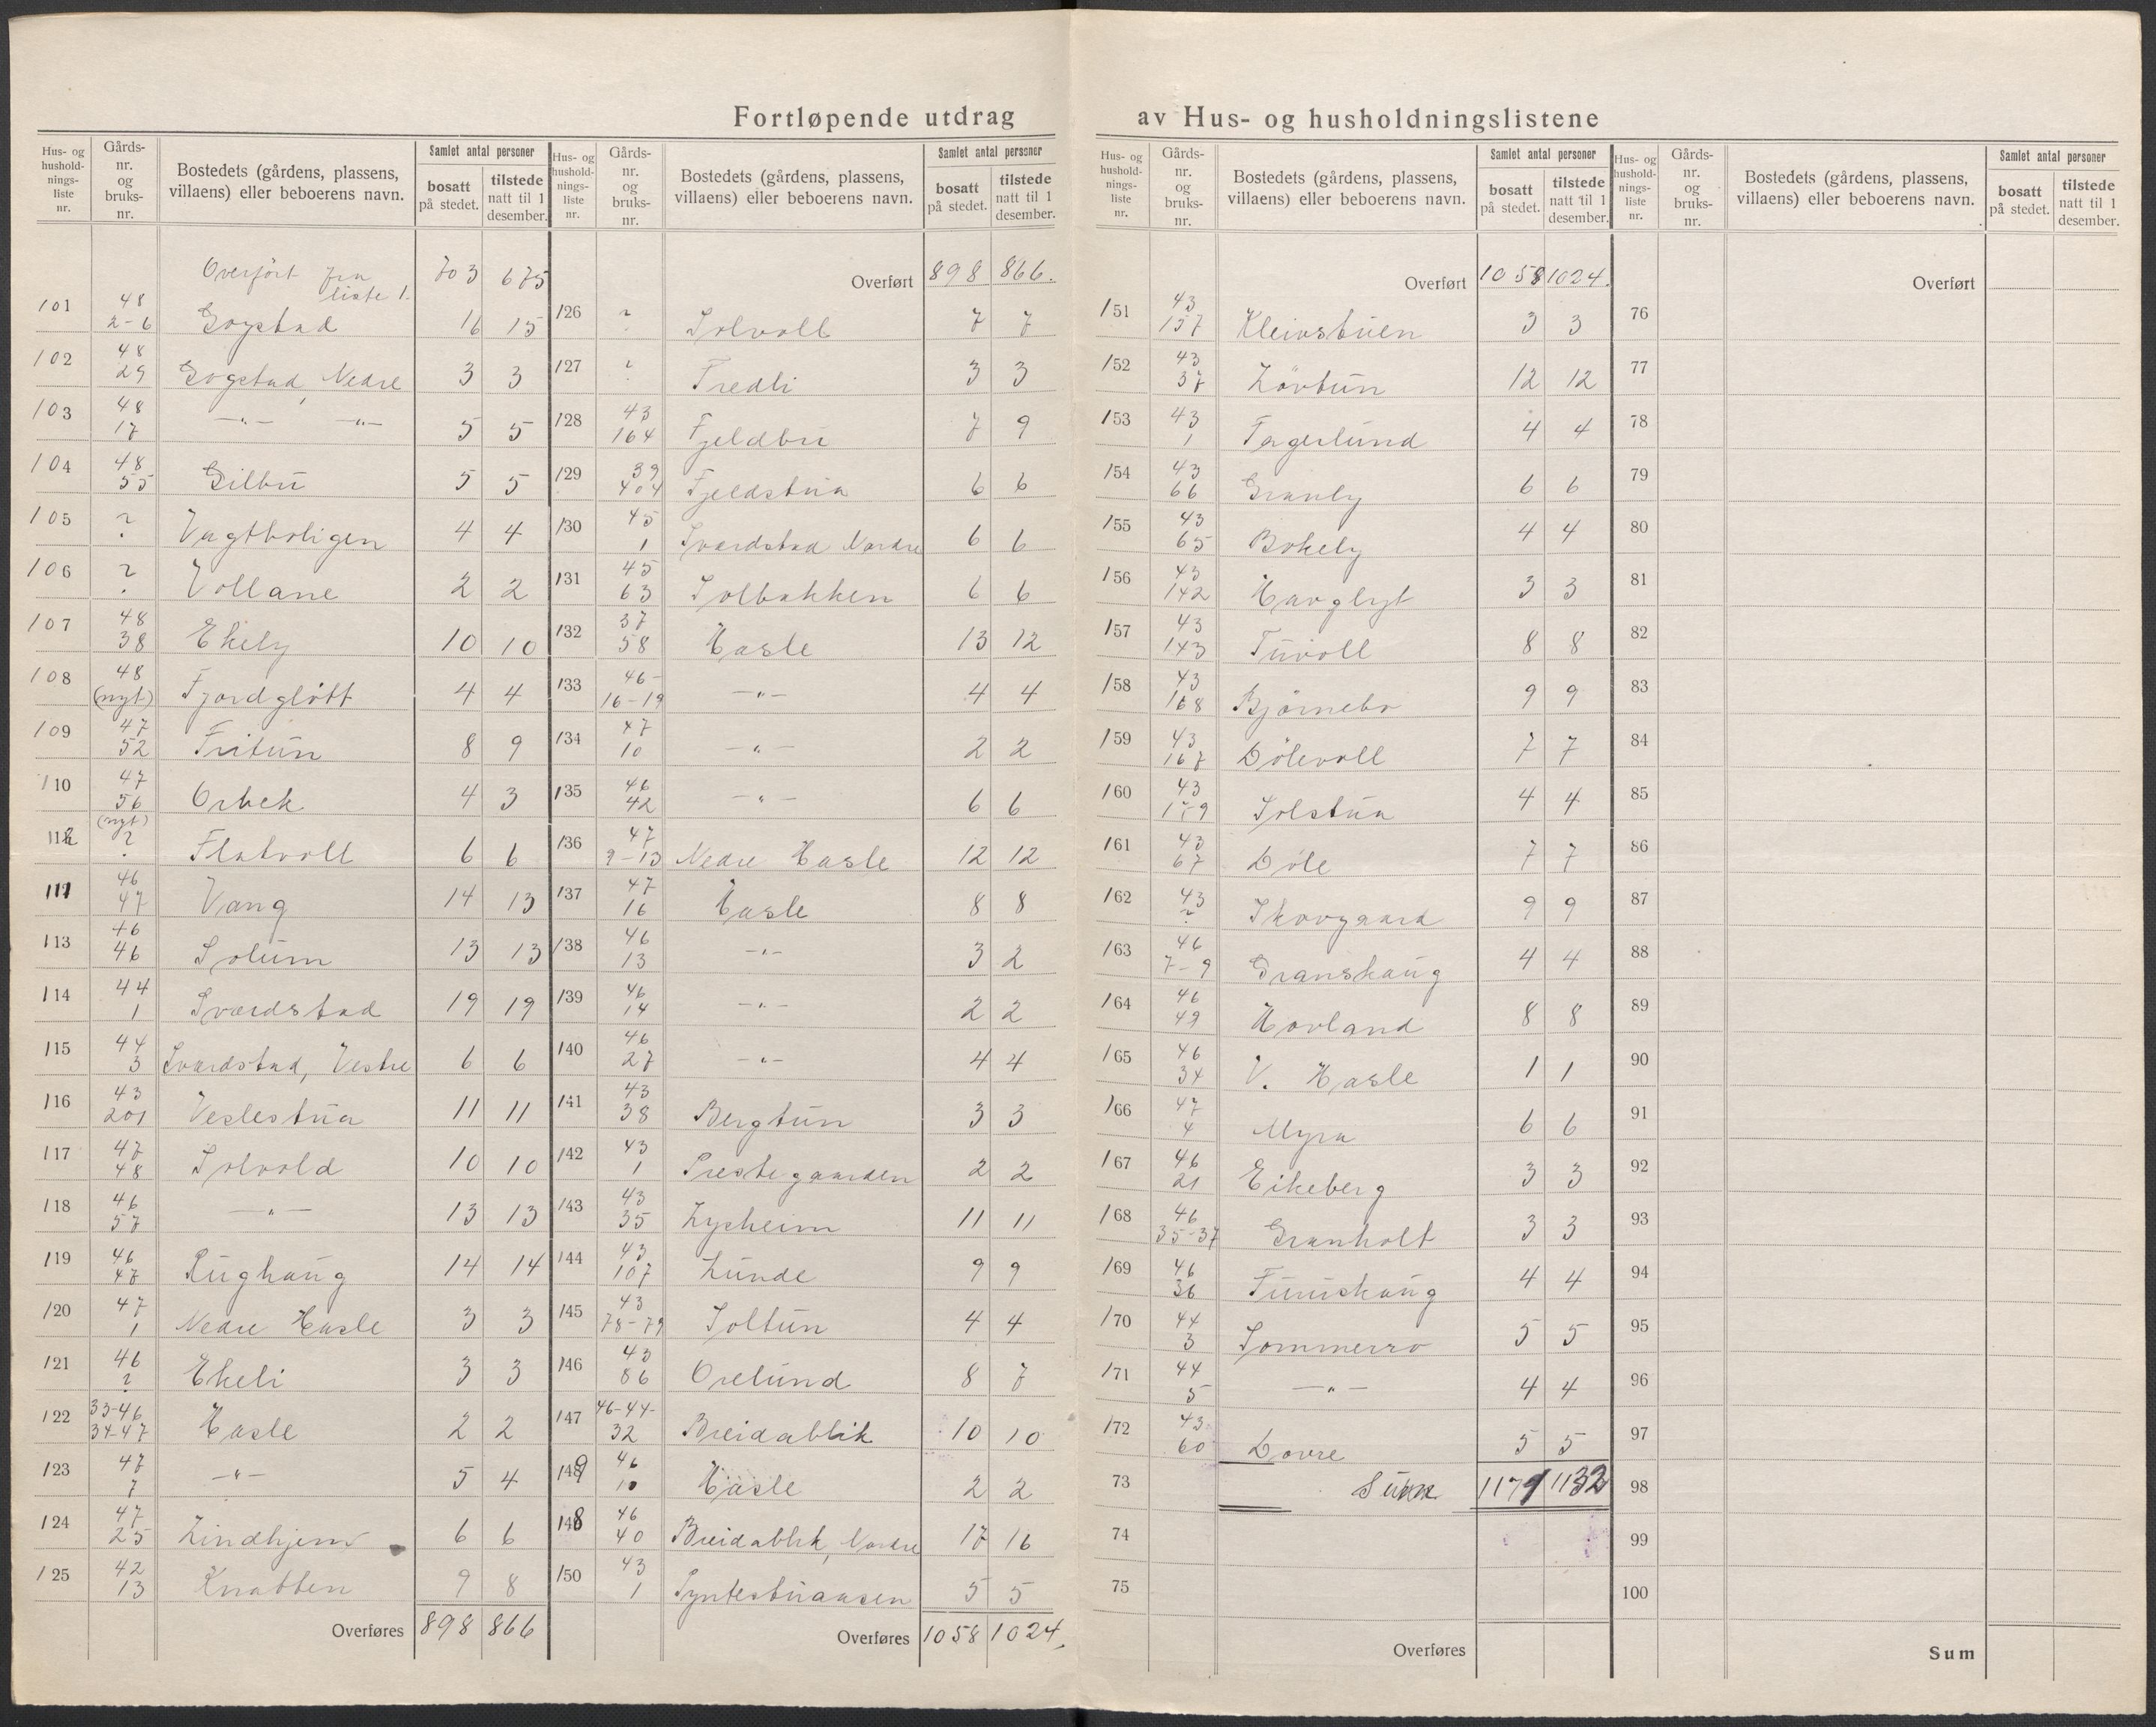 Fortløpende utdrag av Hus- og husholdningslistene
Hus- og husholdningsliste nr. | Gårdsnr. og bruksnr. | Bostedets (gårdens, plassens, villaens) eller beboerens navn. | Samlet antal personer bosatt på stedet. | tilstede natt til 1 desember.
Overført fra liste 1. 703 675
101 48 2-6 Gogstad 16 15
102 48 29 Gogstad, Nedre 3 3
103 48 17 —"— —"— 5 5
104 48 55 Gilbu 5 5
105 ? Vagtboligen 4 4
106 ? Vollane 2 2
107 48 38 Ekely 10 10
108 48 (nyt) Fjordgløtt 4 4
109 47 52 Fritun 8 9
110 47 56 Orbek 4 3
112 (nyt) ? Flatvoll 6 6
111 46 47 Vang 14 13
113 46 46 Solum 13 13
114 44 1 Sværdstad 19 19
115 44 3 Sværdstad, Vestre 6 6
116 43 201 Veslestua 11 11
117 47 48 Solvold 10 10
118 46 57 —"— 13 13
119 46 47 Rughaug 14 14
120 47 1 Nedre Hasle 3 3
121 46 ? Ekeli 3 3
122 33-46 34-47 Hasle 2 2
123 47 7 —"— 5 4
124 47 25 Lindhjem 6 6
125 42 13 Knatten 9 8
Overføres 898 866
Hus- og husholdningsliste nr. | Gårdsnr. og bruksnr. | Bostedets (gårdens, plassens, villaens) eller beboerens navn. | Samlet antal personer bosatt på stedet. | tilstede natt til 1 desember.
Overført 898 866.
126 ? Solvoll 7 7
127 ? Fredli 3 3
128 43 164 Fjeldbu 7 9
129 39 404 Fjeldstua 6 6
130 45 1 Sværdstad Nordre 6 6
131 45 63 Solbakken 6 6
132 37 58 Hasle 13 12
133 46- 16-19 —"— 4 4
134 47 10 —"— 2 2
135 46 42 —"— 6 6
136 47 9-13 Nedre Hasle 12 12
137 47 16 Hasle 8 8
138 46 13 —"— 3 2
139 46 14 —"— 2 2
140 46 27 —"— 4 4
141 43 38 Bergtun 3 3
142 43 1 Prestegaarden 2 2
143 43 35 Lysheim 11 11
144 43 107 Lunde 9 9
145 43 78-79 Soltun 4 4
146 43 86 Orelund 8 7
147 46-44- 32 Breidablik 10 10
149 46 10 Hasle 2 2
148 46 40 Breidablik, Nordre 17 16
150 43 1 5 5
Overføres 1058 1024.
Hus- og husholdningsliste nr. | Gårdsnr. og bruksnr. | Bostedets (gårdens, plassens, villaens) eller beboerens navn. | Samlet antal personer bosatt på stedet. | tilstede natt til 1 desember.
Overført 1058 1024.
151 43 157 Kleivstuen 3 3
152 43 37 Løvtun 12 12
153 43 1 Fagerlund 4 4
154 43 66 Granly 6 6
155 43 65 Bokely 4 4
156 43 142 Havgløt 3 3
157 43 143 Tuvoll 8 8
158 43 168 Bjørnebo 9 9
159 43 167 Dølevoll 7 7
160 43 Solstua 4 4
161 43 67 Døle 7 7
162 43 ? Skovgaard 9 9
163 46 7-9 Granshaug 4 4
164 46 49 Hovland 8 8
165 46 34 V. Hasle 1 1
166 47 4 Myra 6 6
167 46 21 Eikeberg 3 3
168 46 35-37 Granholt 3 3
169 46 36 Furushaug 4 4
170 44 3 Sommerro 5 5
171 44 5 —"— 4 4
172 43 60 Dovre 5 5
73 Sum 1171 1132
74
75
Overføres
Hus- og husholdningsliste nr. | Gårdsnr. og bruksnr. | Bostedets (gårdens, plassens, villaens) eller beboerens navn. | Samlet antal personer bosatt på stedet. | tilstede natt til 1 desember.
Overført
76
77
78
79
80
81
82
83
84
85
86
87
88
89
90
91
92
93
94
95
96
97
98
99
100
Sum